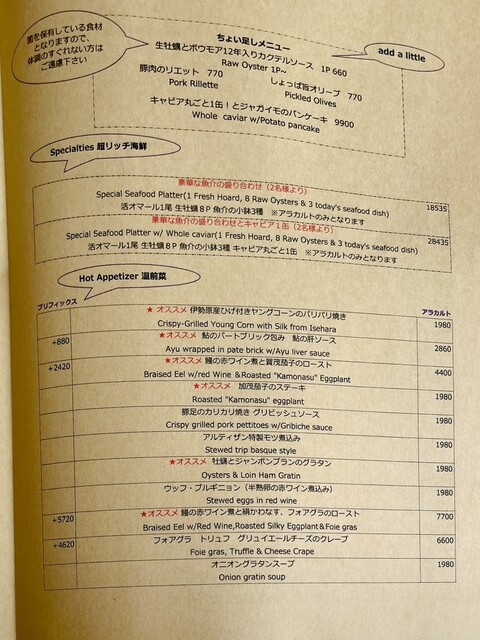 菌を保有している食材
となりますので、
体調のすぐれない方は
ご遠慮下さい
ちょい足しメニュー
add a little
生牡蠣とボウモア12年入りカクテルソース 1P 660
Raw Oyster 1P~
豚肉のリエット 770 しょっぱ旨オリーブ 770
Pork Rillette Pickled Olives
キャビア丸ごと1缶！とジャガイモのパンケーキ 9900
Whole caviar w/Potato pancake
Specialties 超リッチ海鮮
豪華な魚介の盛り合わせ（2名様より）
Special Seafood Platter(1 Fresh Hoard, 8 Raw Oysters & 3 today's seafood dish) 18535
活オマール1尾 生牡蠣８P 魚介の小鉢3種 ※アラカルトのみとなります
豪華な魚介の盛り合わせとキャビア１缶（2名様より）
Special Seafood Platter w/ Whole caviar(1 Fresh Hoard, 8 Raw Oysters & 3 today's seafood dish) 28435
活オマール1尾 生牡蠣８P 魚介の小鉢3種 キャビア丸ごと1缶 ※アラカルトのみとなります
Hot Appetizer 温前菜
プリフィックス アラカルト
★ オススメ 伊勢原産ひげ付きヤングコーンのパリパリ焼き
Crispy-Grilled Young Corn with Silk from Isehara 1980
+880 ★オススメ 鮎のパートブリック包み 鮎の肝ソース
Ayu wrapped in pate brick w/Ayu liver sauce 2860
+2420 ★オススメ 鰻の赤ワイン煮と賀茂茄子のロースト
Braised Eel w/red Wine ＆Roasted "Kamonasu" Eggplant 4400
★オススメ 加茂茄子のステーキ
Roasted "Kamonasu" eggplant 1980
豚足のカリカリ焼き グリビッシュソース
Crispy grilled pork pettitoes w/Gribiche sauce 1980
アルティザン特製モツ煮込み
Stewed trip basque style 1980
★オススメ 牡蠣とジャンボンブランのグラタン
Oysters & Loin Ham Gratin 1980
ウッフ・ブルギニョン（半熟卵の赤ワイン煮込み）
Stewed eggs in red wine 1980
+5720 ★オススメ 鰻の赤ワイン煮と絹かわなす、フォアグラのロースト 7700
Braised Eel w/Red Wine,Roasted Silky Eggplant＆Foie gras
+4620 フォアグラ トリュフ グリュイエールチーズのクレープ 6600
Foie gras, Truffle & Cheese Crape
オニオングラタンスープ 1980
Onion gratin soup